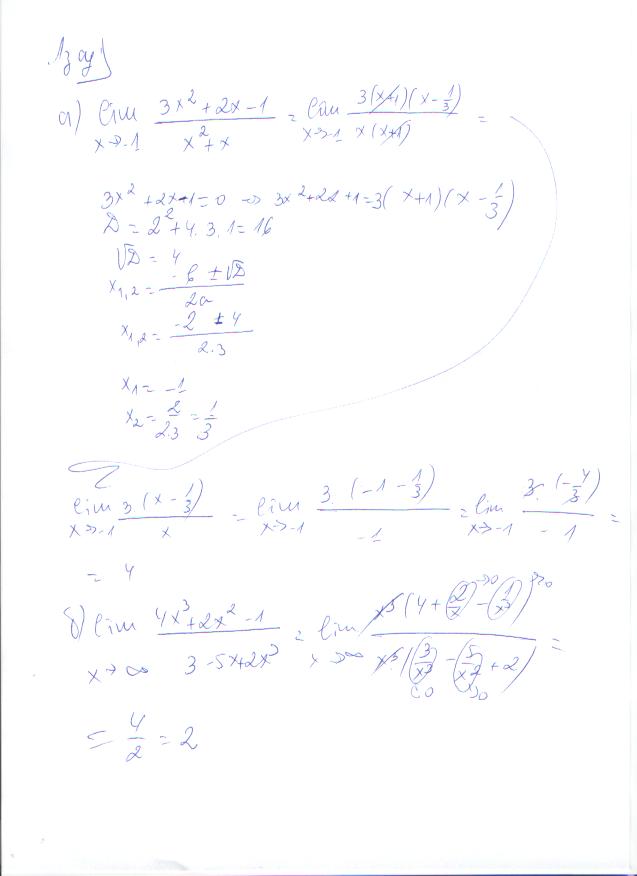 1 зад
а) lim x→-1 (3x² + 2x - 1)/(x² + x) = lim x→-1 3(x+1)(x - 1/3)/x(x+1) =
3x² + 2x - 1 = 0 => 3x² + 2x + 1 = 3(x+1)(x - 1/3)
D = 2² + 4.3.1 = 16
√D = 4
x₁,₂ = (-b ± √D)/2a
x₁,₂ = (-2 ± 4)/2.3
x₁ = -1
x₂ = 2/2.3 = 1/3
lim x→-1 3(x - 1/3)/x = lim x→-1 3.(-1 - 1/3)/-1 = lim x→-1 3.(-4/3)/-1 =
= 4
б) lim x→∞ (4x³ + 2x² - 1)/(3 - 5x + 2x³) = lim x→∞ x³(4 + 2/x →0 - 1/x³ →0)/x³(3/x³ →0 - 5/x² →0 + 2) =
= 4/2 = 2